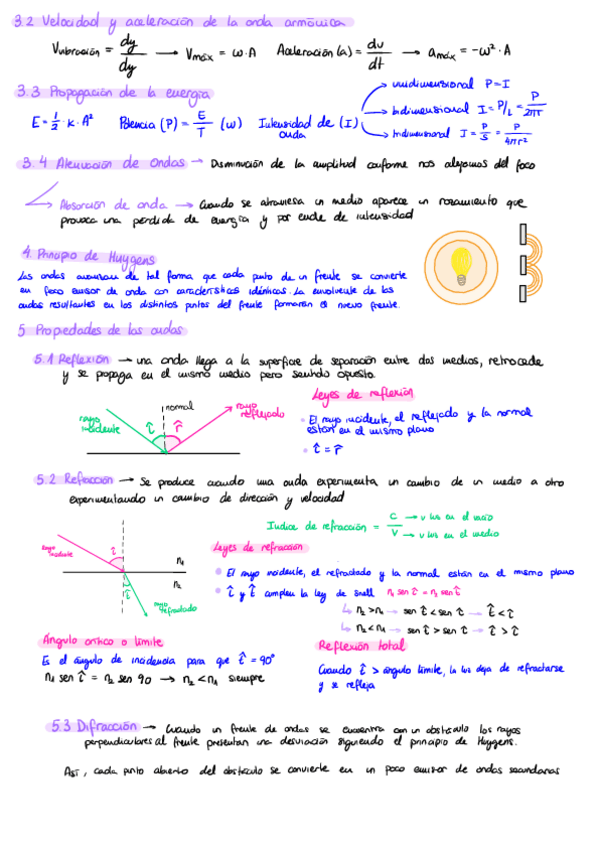 3.2 Velocidad y aceleración de la onda armónica
Vvibración = dy/dy → Vmáx = ω·A Aceleración (a) = dv/dt → amáx = -ω²·A
3.3 Propagación de la energía
E = 1/2 · K · A² Potencia (P) = E/T (W) Intensidad de (I) onda
→ unidimensional P = I
→ bidimensional I = P/L = P/2πr
→ tridimensional I = P/S = P/4πr²
3.4 Atenuación de Ondas → Disminución de la amplitud conforme nos alejamos del foco
Absorción de onda → Cuando se atraviesa un medio aparece un rozamiento que
provoca una pérdida de energía y por ende de intensidad
4. Principio de Huygens
Las ondas avanzan de tal forma que cada punto de un frente se convierte
en foco emisor de onda con características idénticas. La envolvente de las
ondas resultantes en los distintos puntos del frente formarán el nuevo frente.
5 Propiedades de las ondas
5.1 Reflexión → una onda llega a la superficie de separación entre dos medios, retrocede
y se propaga en el mismo medio pero sentido opuesto.
Leyes de reflexión
rayo incidente
normal
rayo reflejado
î r̂
El rayo incidente, el reflejado y la normal
están en el mismo plano
î = r̂
5.2 Refracción → Se produce cuando una onda experimenta un cambio de un medio a otro
experimentando un cambio de dirección y velocidad
Índice de refracción = C/V → v luz en el vacío → v luz en el medio
rayo incidente
î
n1
n2
t̂
rayo refractado
Leyes de refracción
El rayo incidente, el refractado y la normal están en el mismo plano
î y t̂ cumplen la ley de Snell n1 sen î = n2 sen t̂
↳ n2 > n1 → sen t̂ < sen î → t̂ < î
↳ n2 < n1 → sen t̂ > sen î → t̂ > î
Ángulo crítico o límite
Es el ángulo de incidencia para que t̂ = 90°
n1 sen î = n2 sen 90 → n2 < n1 siempre
Reflexión total
Cuando î > ángulo límite, la luz deja de refractarse
y se refleja
5.3 Difracción → Cuando un frente de ondas se encuentra con un obstáculo los rayos
perpendiculares al frente presentan una desviación siguiendo el principio de Huygens.
Así, cada punto abierto del obstáculo se convierte en un foco emisor de ondas secundarias